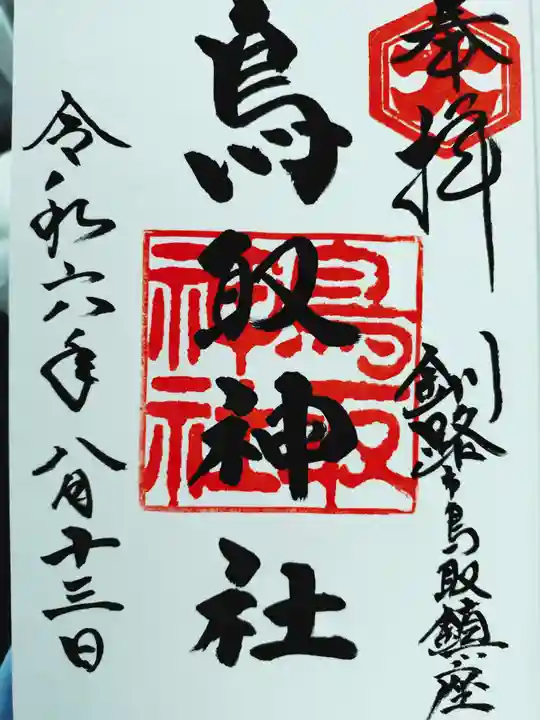 奉拝
釧路市鳥取鎮座
鳥取神社
鳥取
神社
令和六年八月十三日